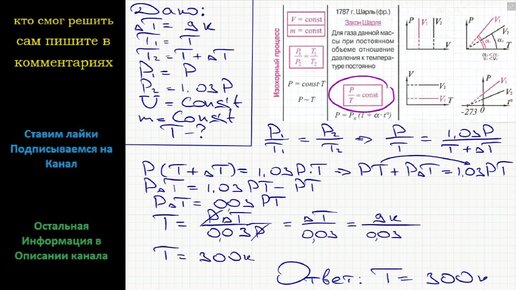 кто смог решить
сам пишите в
комментариях
Ставим лайки
Подписываемся на
Канал
Остальная
Информация в
Описании канала
Дано:
ΔT = 9K
T₁ = T
T₂ = T + ΔT
P₁ = P
P₂ = 1,03P
V = const
m = const
T - ?
Изохорный процесс
V = const
m = const
P₁/P₂ = T₁/T₂
P = const·T
P ~ T
1787 г. Шарль (фр.)
Закон Шарля
Для газа данной мас-
сы при постоянном
объеме отношение
давления к темпера-
туре постоянно
P/T = const
P = P₀ (1 + α · t°)
P V₁
V₂
V T
P V₁
V₂
T
V
V₁
V₂
T
P V₁
V₂
-273 0 t°
P₁/T₁ = P₂/T₂ => P/T = 1,03P/(T + ΔT)
P(T + ΔT) = 1,03P·T => PT + PΔT = 1,03PT
PΔT = 1,03PT - PT
PΔT = 0,03PT
T = PΔT/0,03P = ΔT/0,03 = 9K/0,03
T = 300K
Ответ: T = 300K